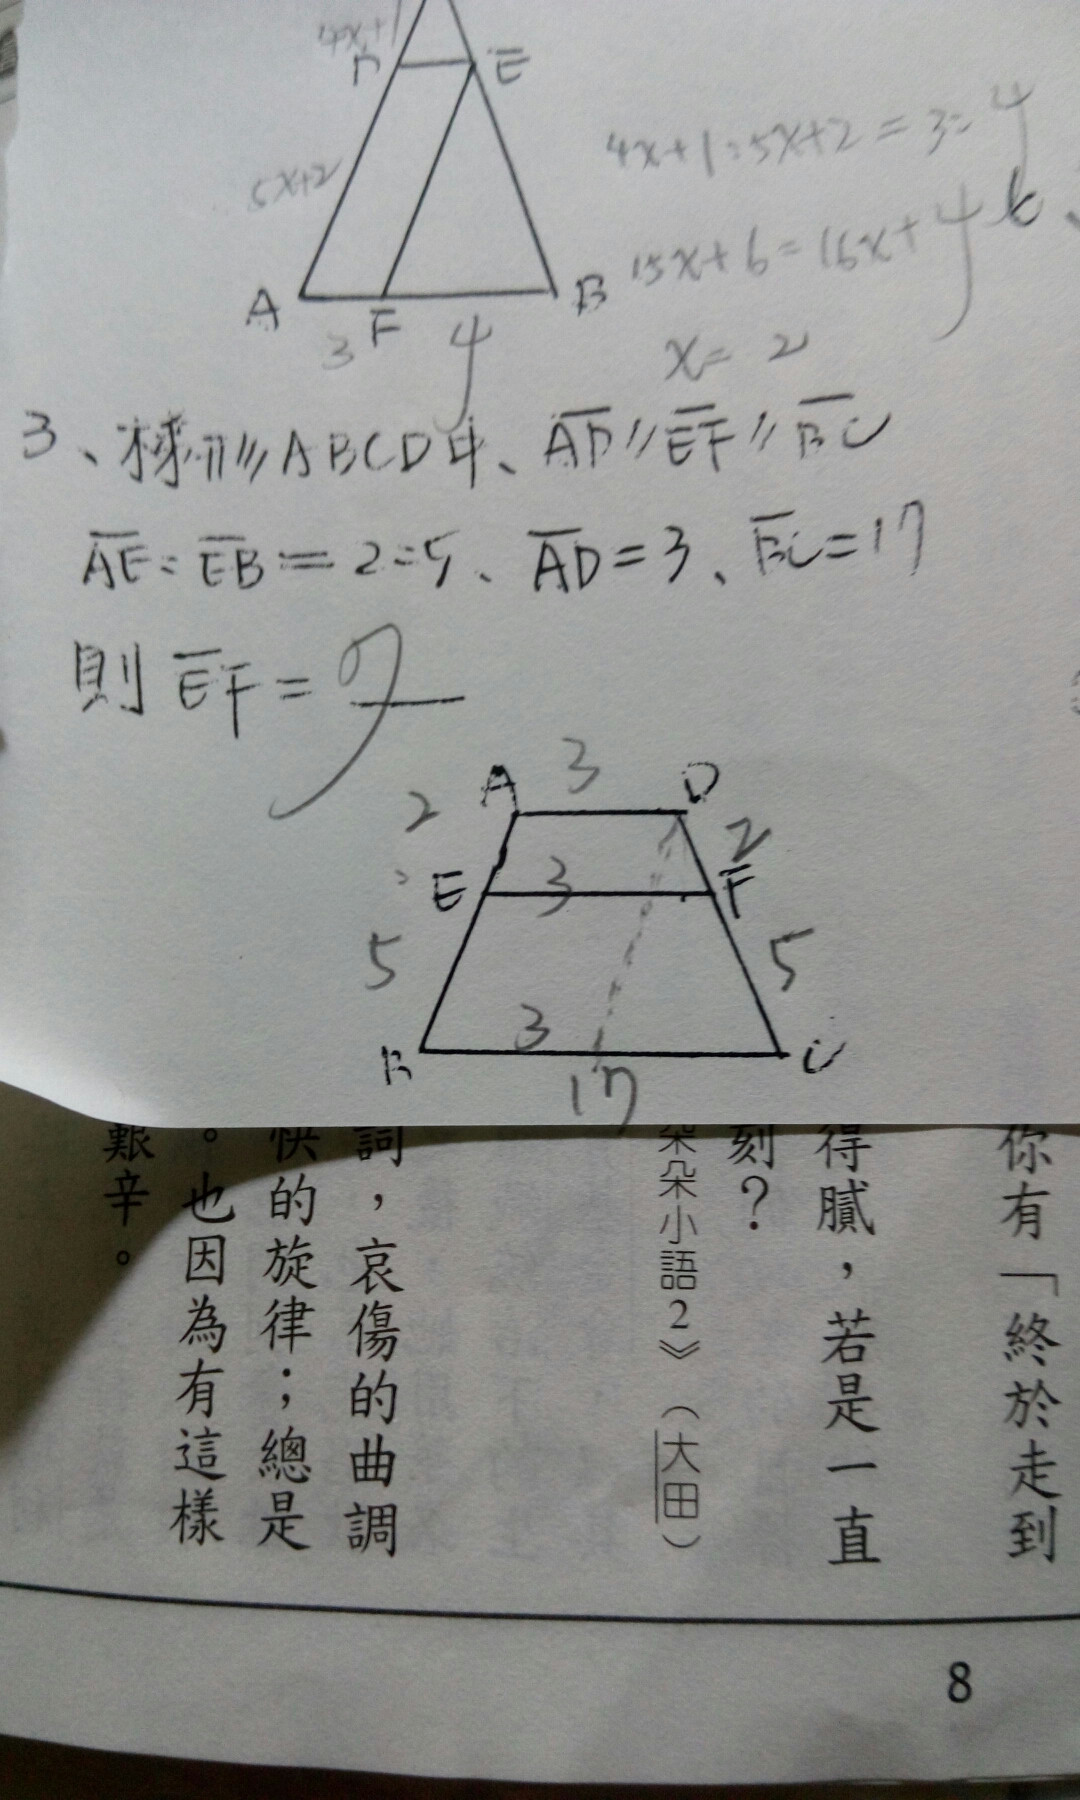 4x+1
D
E
5x+2
4x+1:5x+2=3:4
15x+6=16x+4
A
F
B
3
4
x=2
3、梯形ABCD中、AD//EF//BC
AE:EB=2:5、AD=3、BC=17
則EF=7
3
A
D
2
2
E
3
F
5
5
3
B
C
17
你有「終於走到
得膩,若是一直
刻?
朵朵小語2》(大田)
詞,哀傷的曲調
快的旋律;總是
。也因為有這樣
艱辛。
8